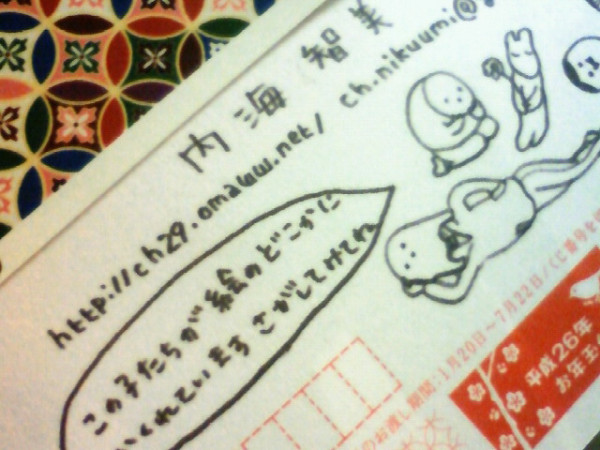 内海 智美
http://ch29.omawww.net/
ch.nikuumi@
この子たちが絵のどこかに
かくれています さがしてけてね
のお渡し期間:1月20日~7月22日/くじ番号を
平成26年
お年玉